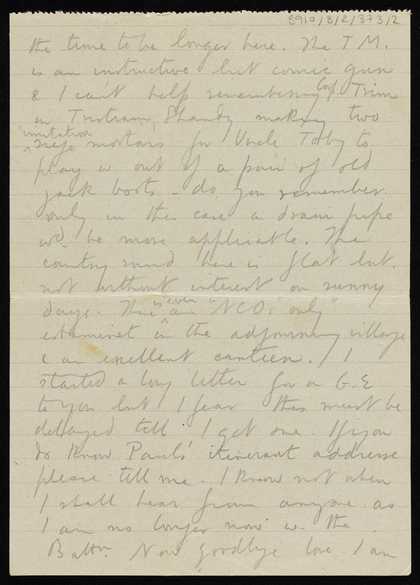 8910/8/2/373/2
the time to be longer here. The T.M.
is an instructive but comic gun
& I can't help remembering Cap. Trim
in Tristram Shandy making two
imitation
siege mortars for Uncle Toby to
play w out of a pair of old
jack boots - do you remember
only in this case a drain pipe
wd. be more applicable. The
country round here is flat but
not without interest on sunny
days. There is even a "NCOs only"
estaminet in the adjourning village
& an excellent canteen. I
started a long letter for a G.E
to you but I fear this must be
delayed till I get one. If you
do know Paul's itinerant addresse
please tell me. I know not when
I shall hear from anyone as
I am no longer now w. the
Battn. Now goodbye love I am